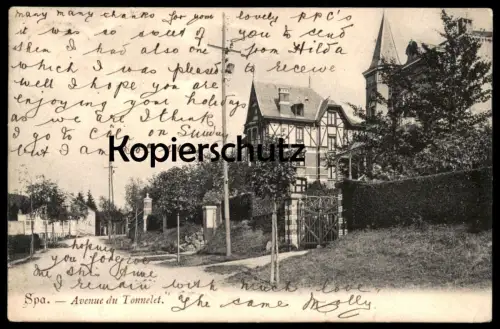 many many thanks for your lovely ppc's
it was so sweet of you to send
then I had also one from Hilda
which I was pleased to receive
well I hope you are
enjoying your holidays
as we are I think
I go to C on Sunday
but I am
Kopierschutz
Spa
hoping
you forgive
me this time
I remain with much love
The same Molly
Spa. — Avenue du Tonnelet.